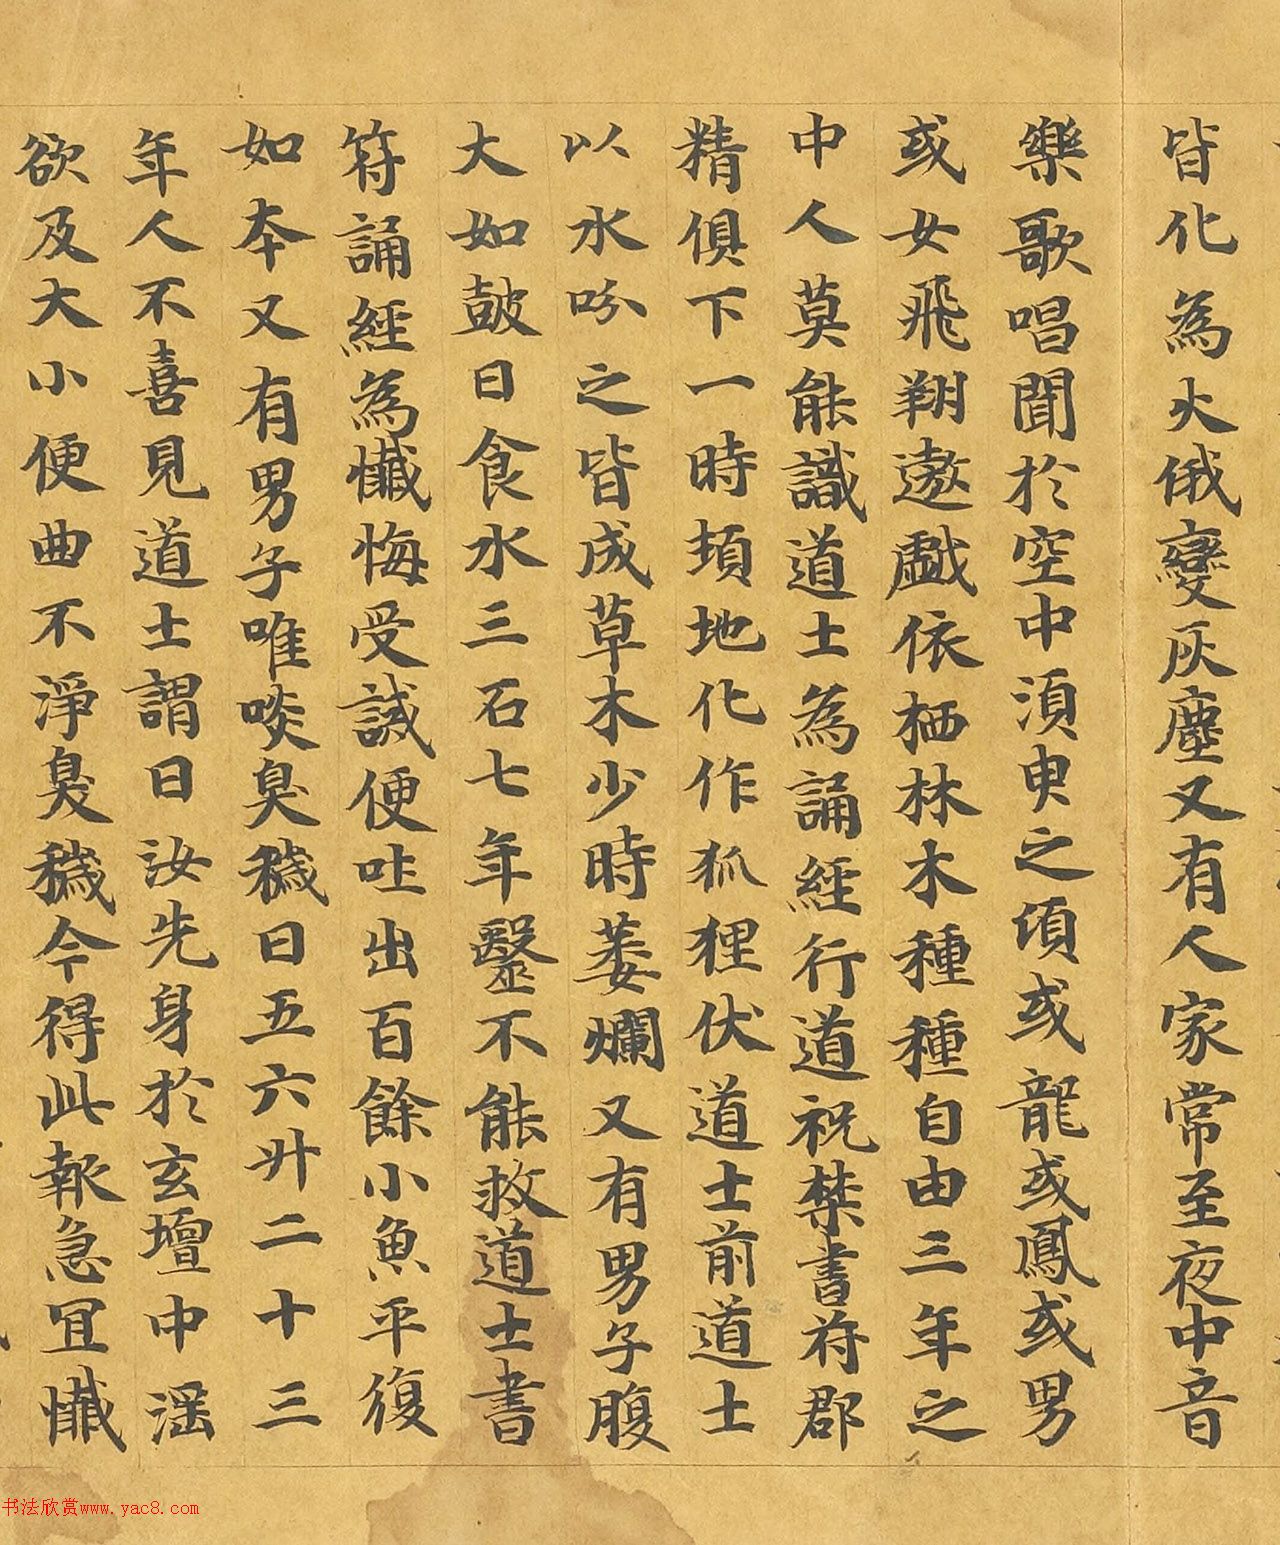 皆化為火俄變灰塵又有人家常至夜中音
樂歌唱聞於空中須臾之頃或龍或鳳或男
或女飛翔遨戲依栖林木種種自由三年之
中人莫能識道士為誦經行道祝禁書符郡
精俱下一時頓地化作狐狸伏道士前道士
以水吩之皆成草木少時萎爛又有男子腹
大如皷日食水三石七年醫不能救道士書
符誦經為懺悔受誡便吐出百餘小魚平復
如本又有男子唯啖臭穢日五六升二十三
年人不喜見道士謂曰汝先身於玄壇中滛
欲及大小便曲不淨臭穢今得此報急冝懺
书法欣赏www.yac8.com